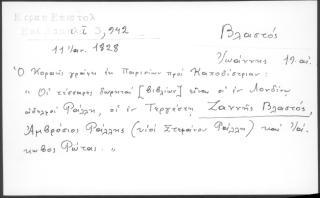 Εθραι Επιστολ
Επιστολαί 3,942
Βλαστός
11 Ιαν. 1828
Ἰωάννης 19. αἰ.
Ὁ Κοραῆς γράφει ἐκ Παρισίων πρὸς Καποδίστριαν:
" Οἱ τέσσαρες δωρηταὶ [βιβλίων] εἶναι οἱ ἐν Λονδίνῳ
ἀδελφοὶ Ράλλη, οἱ ἐν Τεργέστῃ Ζαννῆς Βλαστός,
Ἀμβρόσιος Ράλλης (υἱοὶ Στεφάνου Ράλλη) καὶ Ἰά-
κωβος Ρώτας. "